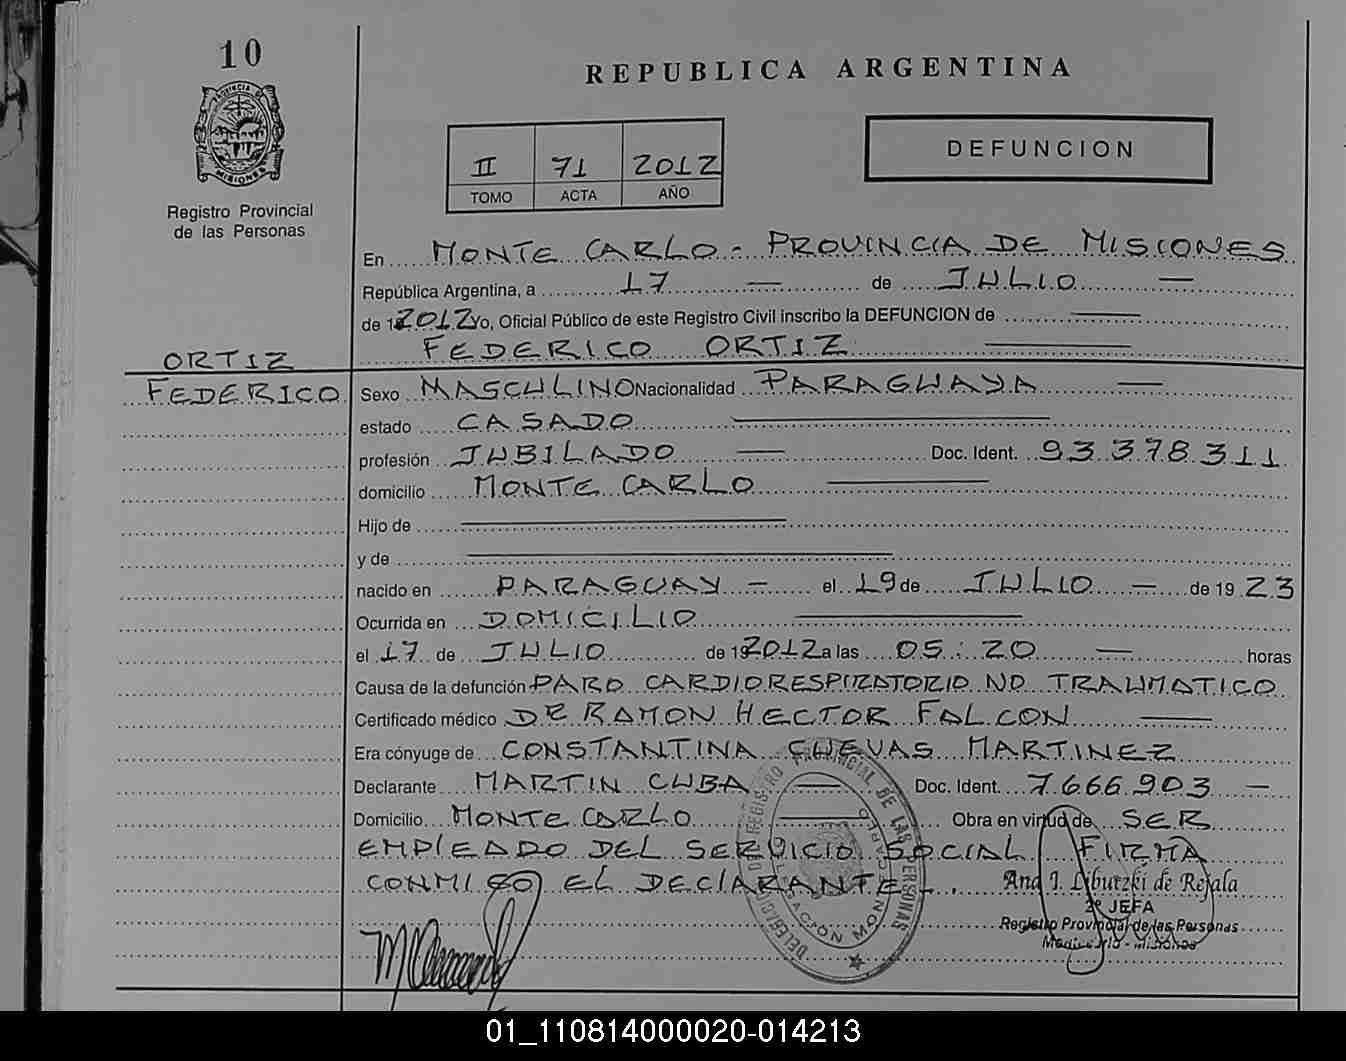 10
REPUBLICA ARGENTINA
PROVINCIA DE MISIONES
Registro Provincial
de las Personas
II 71 2012
TOMO ACTA AÑO
DEFUNCION
En MONTE CARLO - PROVINCIA DE MISIONES
República Argentina, a 17 — de JULIO —
de 2012 Yo, Oficial Público de este Registro Civil inscribo la DEFUNCION de
FEDERICO ORTIZ
ORTIZ
FEDERICO
Sexo MASCULINO Nacionalidad PARAGUAYA —
estado CASADO
profesión JUBILADO — Doc. Ident. 93 378 311
domicilio MONTE CARLO
Hijo de
y de
nacido en PARAGUAY — el 19 de JULIO — de 1923
Ocurrida en DOMICILIO
el 17 de JULIO de 2012 a las 05:20 — horas
Causa de la defunción PARO CARDIORESPIRATORIO NO TRAUMATICO
Certificado médico DR RAMON HECTOR FALCON
Era cónyuge de CONSTANTINA CUEVAS MARTINEZ
Declarante MARTIN CUBA — Doc. Ident. 7.666.903 —
Domicilio MONTE CARLO Obra en virtud de SER
EMPLEADO DEL SERVICIO SOCIAL FIRMA
CONMIGO EL DECLARANTE -.
Ana I. Lybutzki de Rejala
2º JEFA
Registro Provincial de las Personas
Misiones
REGISTRO PROVINCIAL DE LAS PERSONAS
01_110814000020-014213